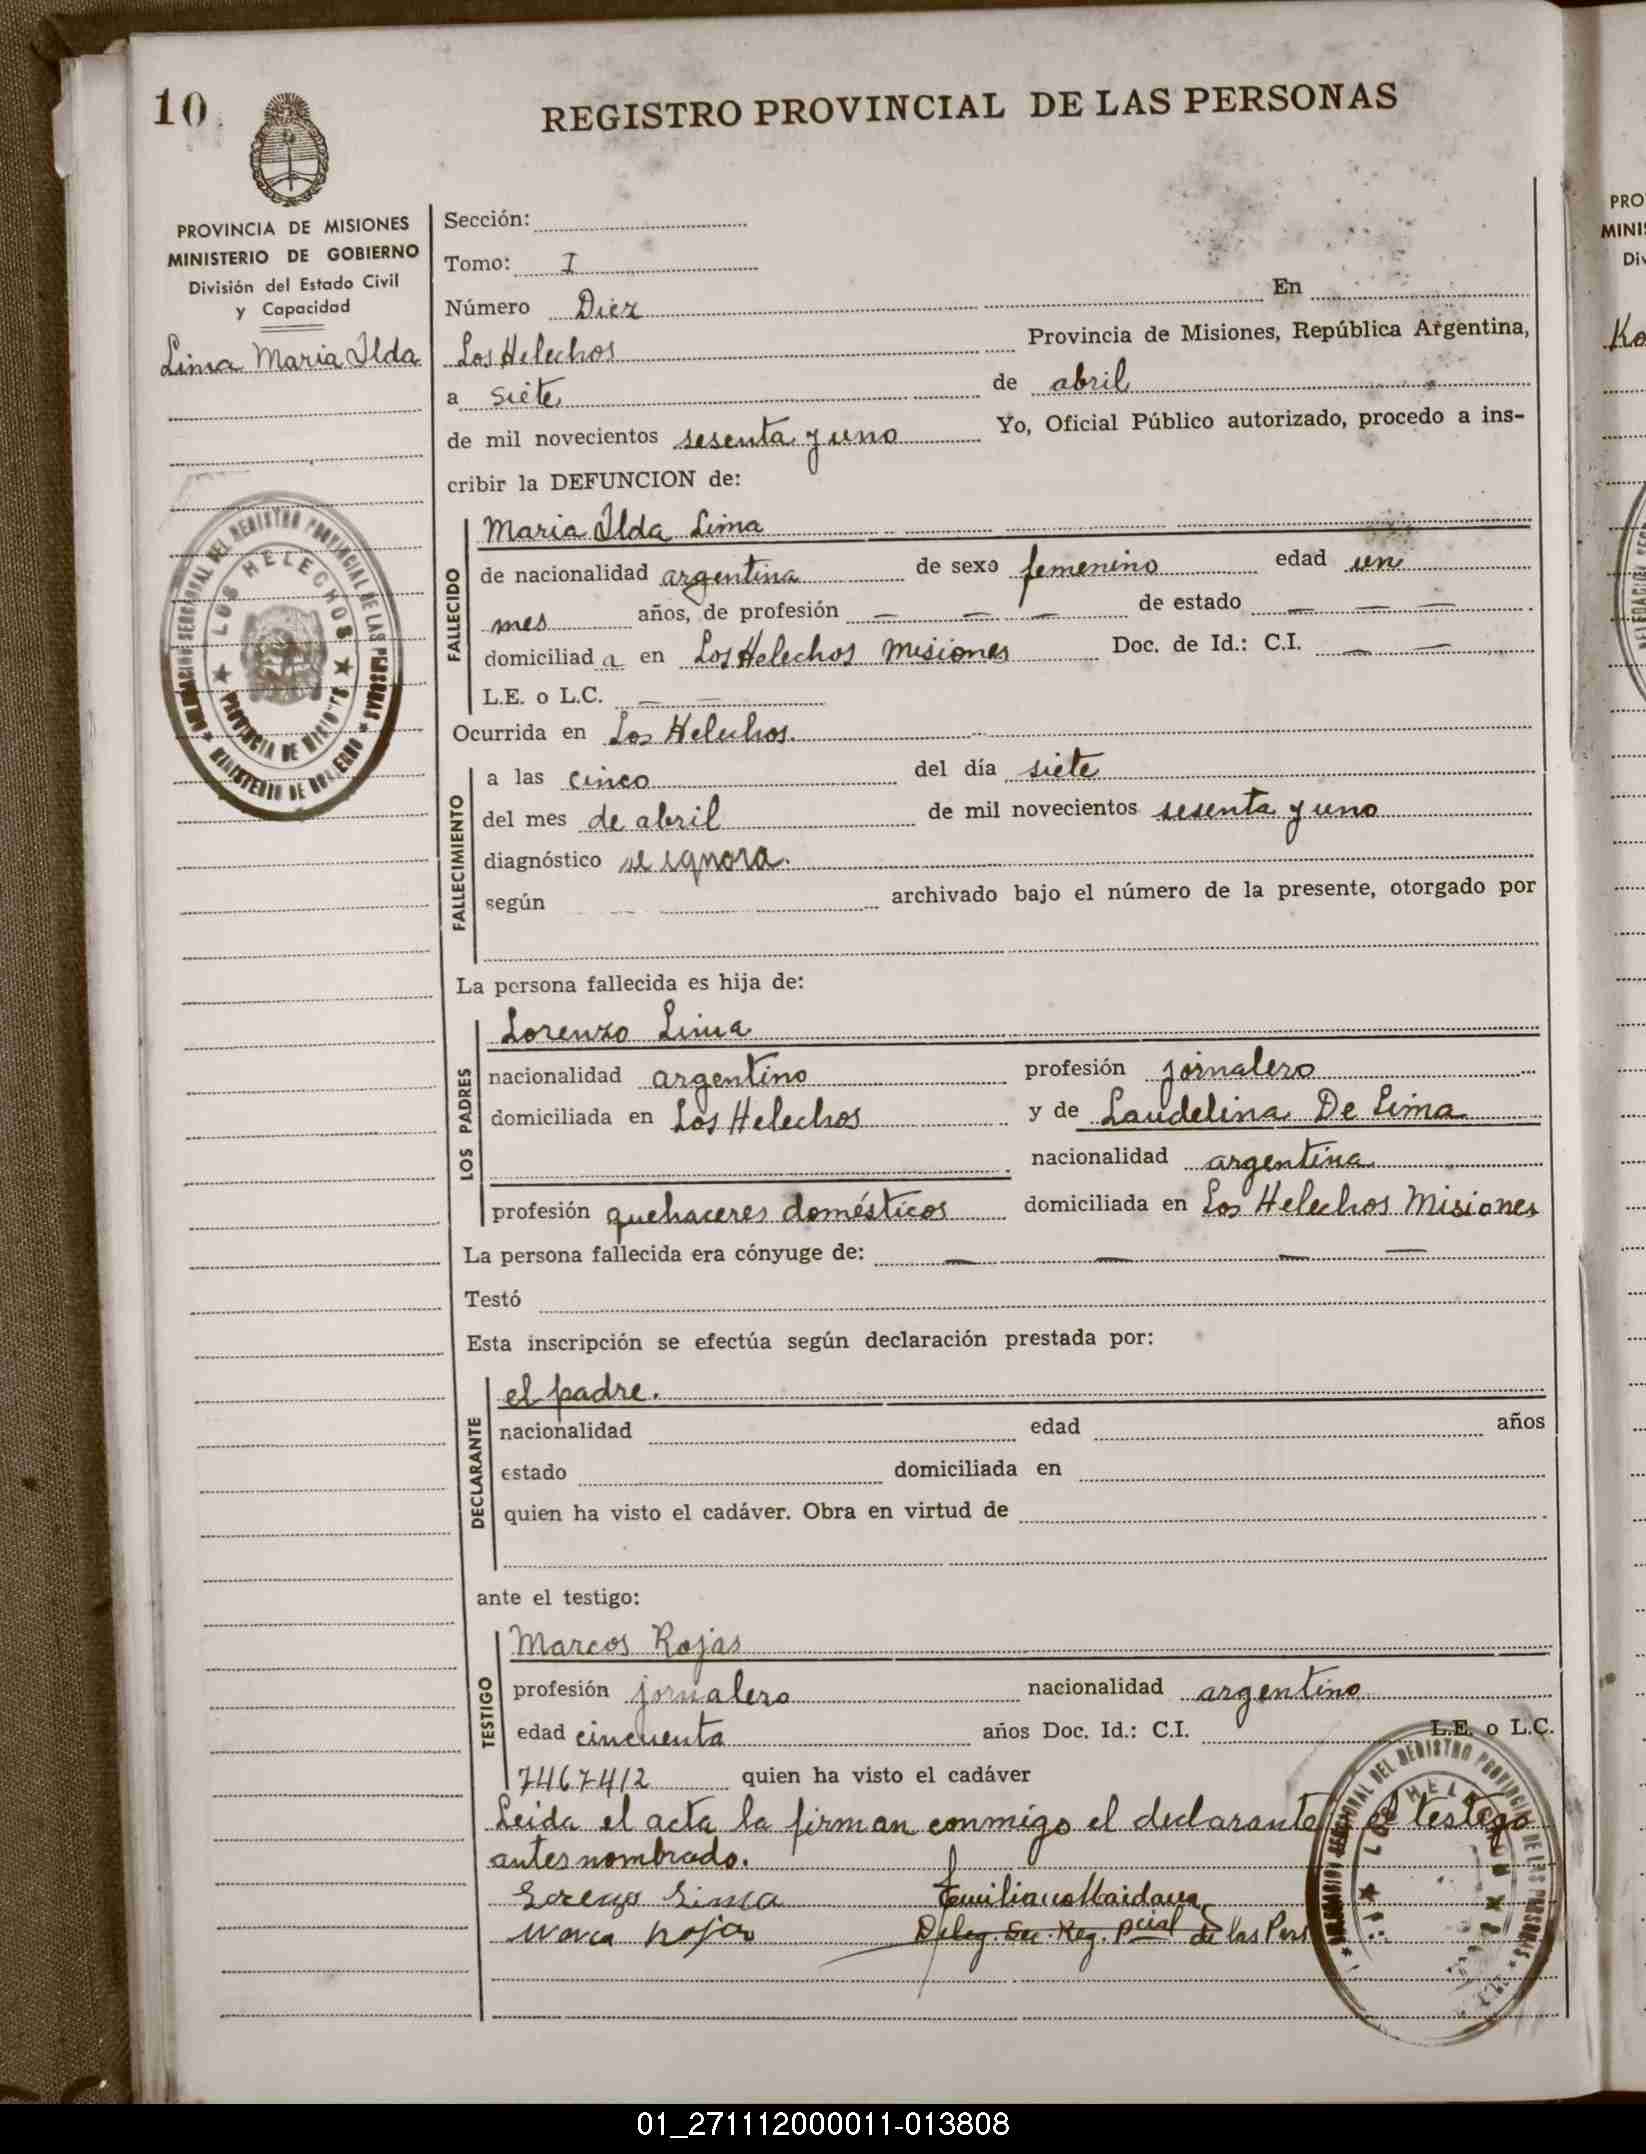 10
REGISTRO PROVINCIAL DE LAS PERSONAS
PROVINCIA DE MISIONES
MINISTERIO DE GOBIERNO
División del Estado Civil
y Capacidad
Lima Maria Ilda
DELEGACION SECCIONAL DEL REGISTRO PROVINCIAL DE LAS PERSONAS
MINISTERIO DE GOBIERNO
LOS HELECHOS
PROVINCIA DE MISIONES
Sección:
Tomo: I
Número Diez En
Los Helechos Provincia de Misiones, República Argentina,
a siete de abril
de mil novecientos sesenta y uno Yo, Oficial Público autorizado, procedo a ins-
cribir la DEFUNCION de:
FALLECIDO
Maria Ilda Lima
de nacionalidad argentina de sexo femenino edad un
mes años, de profesión — — — de estado — — —
domiciliada en Los Helechos Misiones Doc. de Id.: C.I. — —
L.E. o L.C. — —
Ocurrida en Los Helechos.
FALLECIMIENTO
a las cinco del día siete
del mes de abril de mil novecientos sesenta y uno
diagnóstico se ignora.
según archivado bajo el número de la presente, otorgado por
La persona fallecida es hija de:
LOS PADRES
Lorenzo Lima
nacionalidad argentino profesión jornalero
domiciliada en Los Helechos y de Laudelina De Lima
nacionalidad argentina
profesión quehaceres domésticos domiciliada en Los Helechos Misiones
La persona fallecida era cónyuge de: — — — —
Testó
Esta inscripción se efectúa según declaración prestada por:
DECLARANTE
el padre.
nacionalidad edad años
estado domiciliada en
quien ha visto el cadáver. Obra en virtud de
ante el testigo:
TESTIGO
Marcos Rojas
profesión jornalero nacionalidad argentino
edad cincuenta años Doc. Id.: C.I. L.E. o L.C.
7467412 quien ha visto el cadáver
Leida el acta la firman conmigo el declarante y el testigo
antes nombrado.
Lorenzo Lima Emiliano Maidana
Marca Rojas Deleg. Sec. Reg. Pcial de las Pers
DELEGACION SECCIONAL DEL REGISTRO PROVINCIAL DE LAS PERSONAS
LOS HELECHOS
PRO
MINIS
Div
Ko
01_271112000011-013808